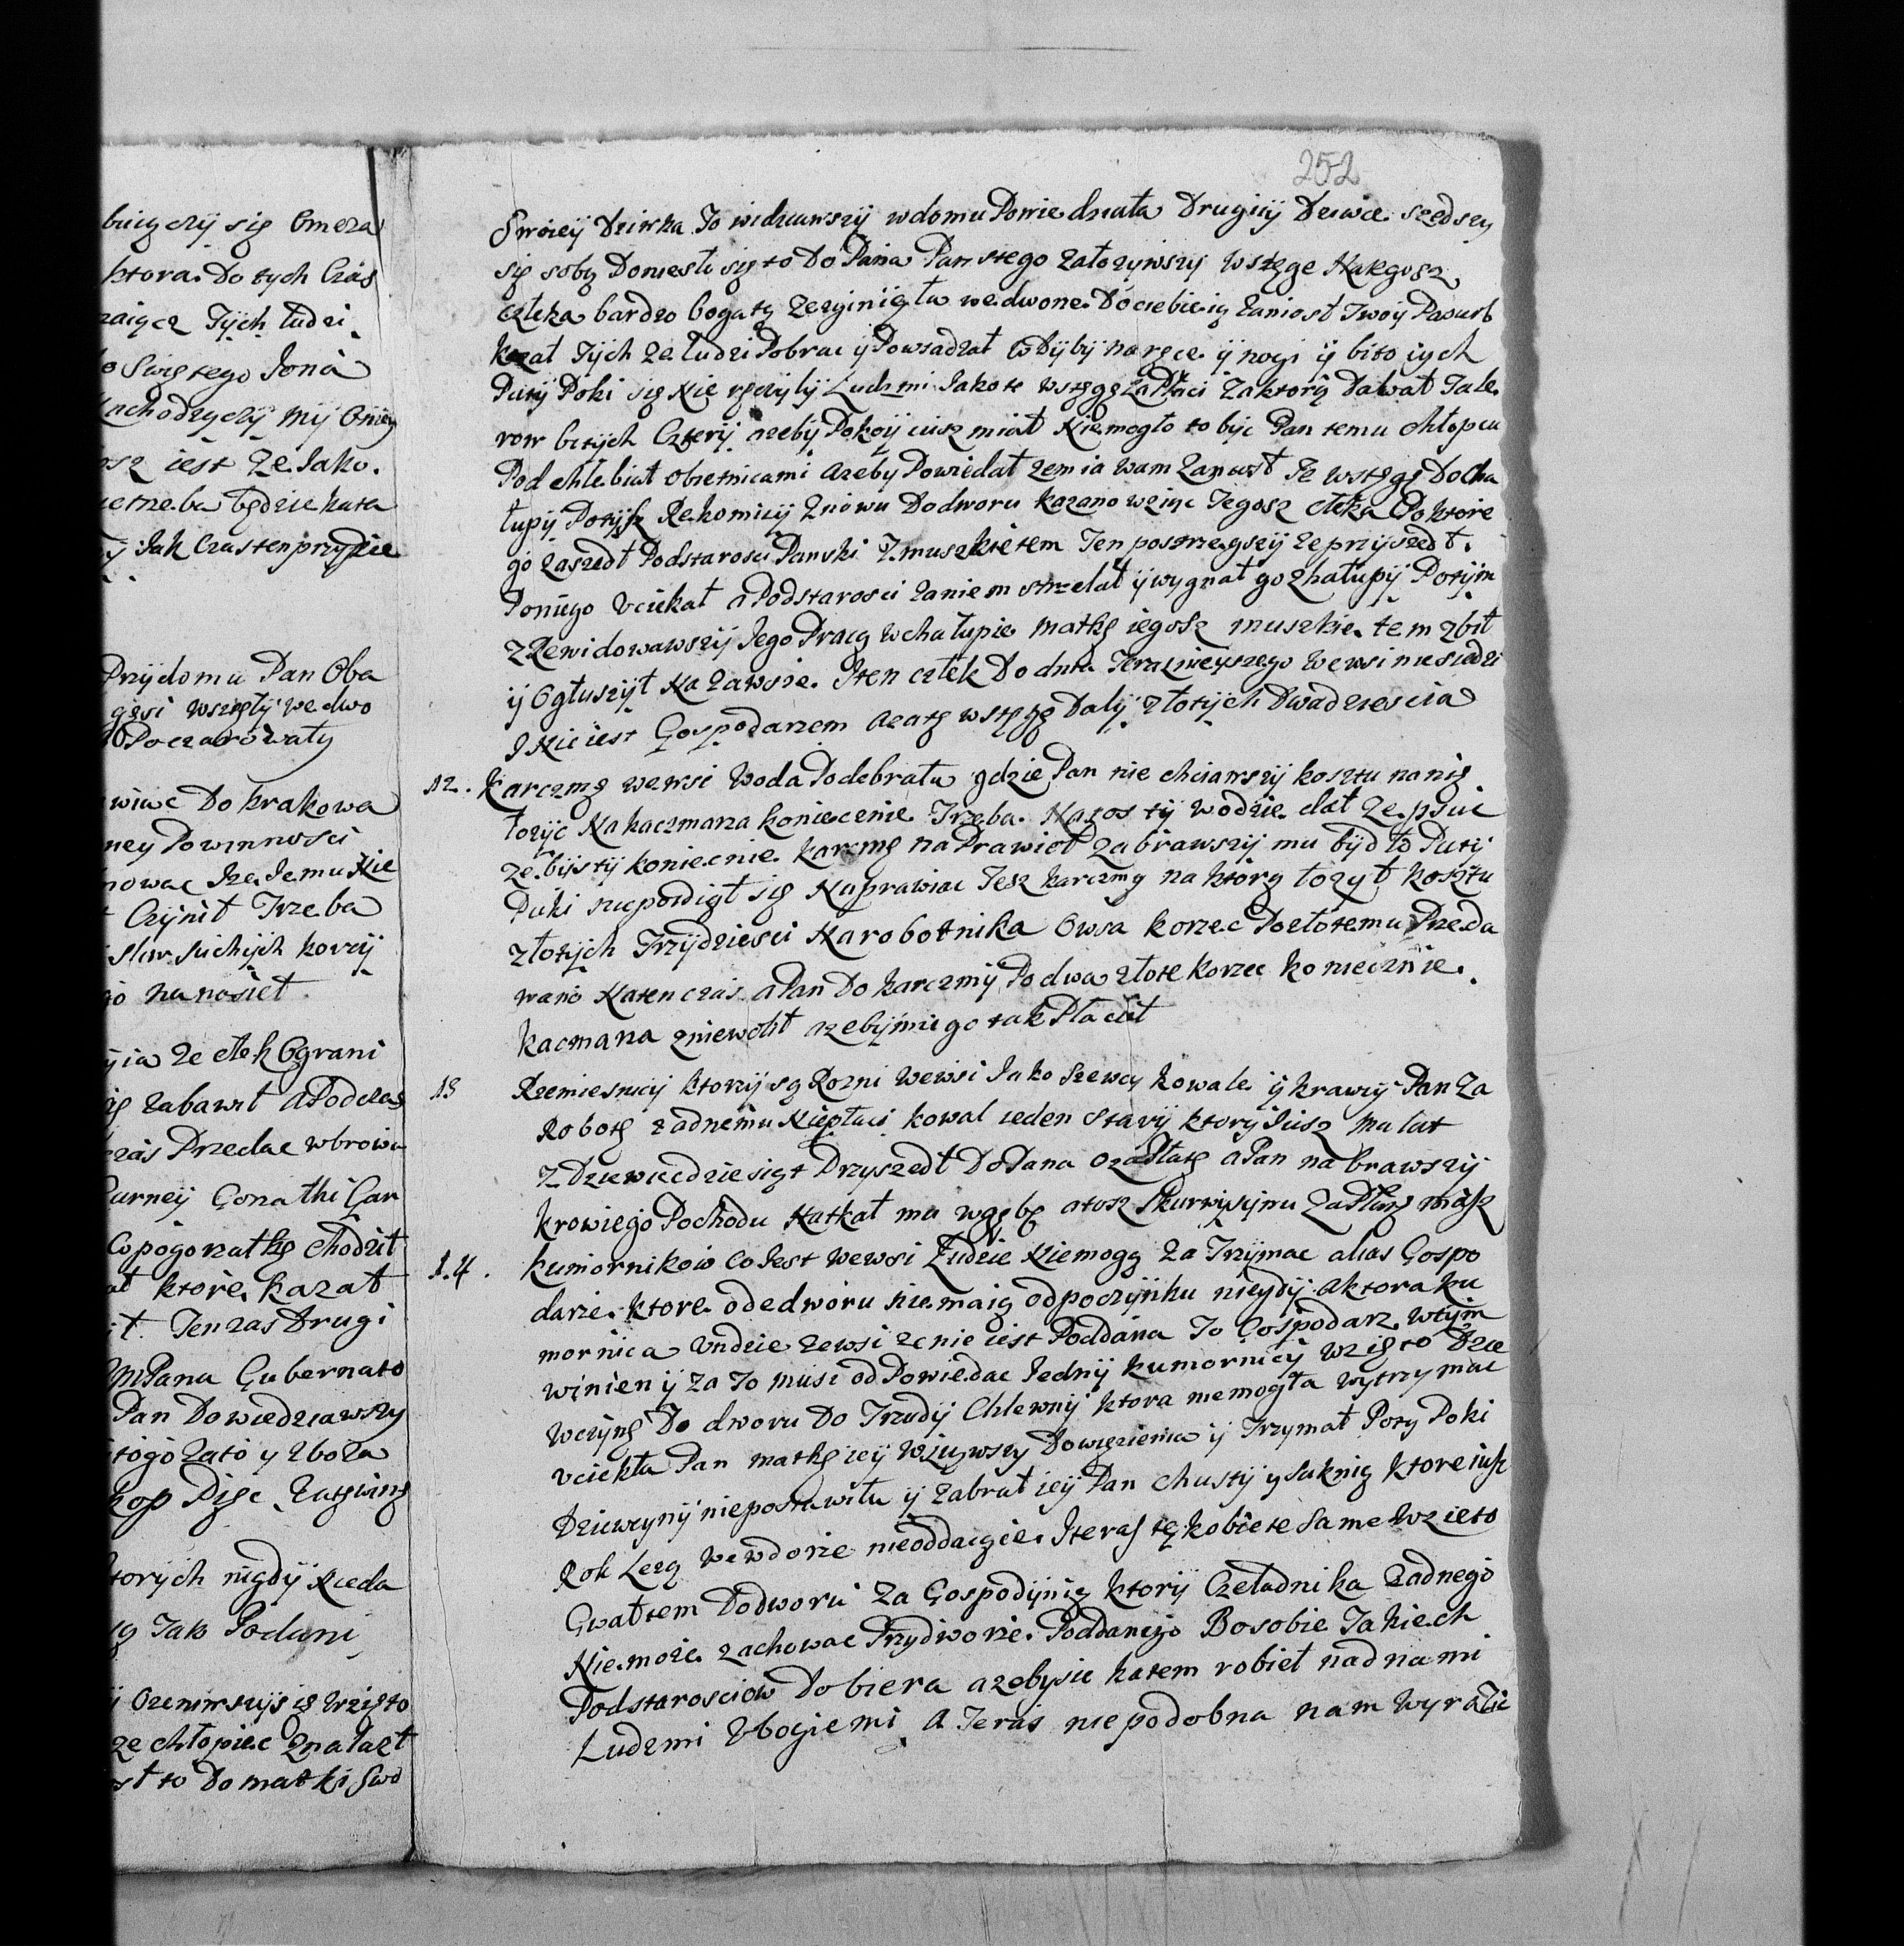 buięczÿ się Omeza
ktora Do tych Czas
raięcz Tÿch ludzi
o Swiętego Jona
nchodzyczÿ mÿ Oniey
osz iest ze Jako
ietrzeba będzie kata
ÿ Jak Czas ten przyÿdzie
Przÿ domu Pan Oba
gęsi wszęłÿ we dwo
Poczarowałÿ
wiac Do krakowa
ney Powinnosci
mowac Ize Jemu Nie
Czÿnił Trzeba
Sliw suchÿch korcÿ
go nanosiet
ÿia ze człek Ograni
ię zabawił a Podczas
czas Przedac wbrowa
Curneÿ Gonatki Gar
Co pogonatkę chodzit
at ktore kazat
it. Ten zas Drugi
M Pana Gubernato
Pan Dowiedziawszy
togo zato y zboza
kop Pięc Zastwing
torÿch nigdÿ Nieda
ią Jako Podani
ÿ Ozeniwszÿ się wzięto
ze chłopiec Znalazł
st to Do matki Swo
252
Swoieÿ Dziwka To widziawszÿ w domu Powiedziała Drugiÿ Dziwce szedszy
się sobą Doniesło się to Do Pana Pan stego załozÿwszÿ wstęgę Na kęgosz
człeka bardzo bogatą ze zginięła we dworze Do ciebie ią zaniosł Twoÿ Pasurb
kazał Tÿch ze ludzi Pobrac ÿ Powsadzał w Dÿbÿ na ręce ÿ nogi ÿ bito iych
Putÿ Poki się Nie ręczÿlÿ Ludzmi Jako te wstęgę zapłaci za ktorą Dawał Tale
row bitÿch Czterÿ azebÿ Pokoÿ iusz miał Niemogło to bÿc Pan temu chłopcu
Podchlebiał obietnicami azebÿ Powiedał zem ia wam Zaniosł Te wstęgę Do cha
łupÿ Potÿsz Rekomiciÿ Znowu Do dworu kazano wzięc Tegosz człeka Po ktore
go zaszedł Podstarosci Panski Z muszkietem Ten postrzegszÿ ze przÿszedł
Poniego Vciekał a Podstarosci zaniem strzelał ÿ wygnał go z hałupÿ Potÿm
z Rewidowawszÿ Jego Pracą w chałupie matkę iegosz muszkietem zbił
ÿ Ogłuszÿł Na zawsze. Iten człek Do dnia Teraznieÿszego we wsi niesiedzi
I Nie iest Gospodarzem a zatę wstęgę Dalÿ złotÿch Dwadziescia
12. Karczmę we wsi Woda Podebrała gdzie Pan nie chciawszÿ kosztu nanię
łozÿc Na kaczmarza koniecznie Trzeba Na gos tÿ wodzie dał ze psuie
ze bÿs tÿ koniecnie karcmę na Prawieł Zabrawszÿ mu bÿdło Putÿ
Puki nie podięt się Naprawiac Tesz karczmy na ktorą łozył kosztu
złotych Trzÿdziesci Na robotnika Owsa korzec Pozłotemu Przeda
wano Natenczas a Pan Do karczmÿ Po dwa złote korzec koniecznie
kacmarza zniewolił azebÿ mu go tak Płacił
13 Rzemiesnicÿ ktorzÿ są Rozni We wsi Jako Szewcy kowale ÿ krawcÿ Pan Za
Robotę zadnemu Niepłaci kowal ieden Starÿ ktorÿ iusz ma lat
z Dziewiedziesiąt Przyszedł Do Pana o zapłatę a Pan na brawszÿ
krowiego Pochodu Natkał mu w gębę a tosz Skurwÿsÿnu Zapłatę masz
1.4. Kumornikow co Jest We wsi Ludzie Niemogą Za Trzÿmac alias Gospo
darze ktore ode dworu niemaią odpoczÿnku nigdÿ. A ktora ku
mornica Undzie ze wsi ze nie iest Poddana To Gospodarz wtÿm
winien ÿ za to musi od Powiedac Jednÿ kumornicÿ wzięto Dzie
wczÿnę Do dworu Do Trzodÿ Chlewnÿ ktora niemogła wytrzymac
vciekła Pan matkę ieÿ wziąwszy Do więzienia ÿ Trzymał Poty Poki
Dziewczynÿ niepostawiła ÿ zabrał ieÿ Pan chustÿ y suknię ktore iusz
Rok Lezą we dworze nieoddaięcie. I teras tę kobiete same wzieto
Gwałtem Do dworu Za Gospodÿnię ktorÿ Czeladnika zadnego
Nie moze zachowac Przÿ dworze Poddanego Bo sobie Takiech
Podstarosciow Dobiera azebysie katem robieł nad nami
Ludzmi Vbogiemi A Teras niepodobna nam wyrazic